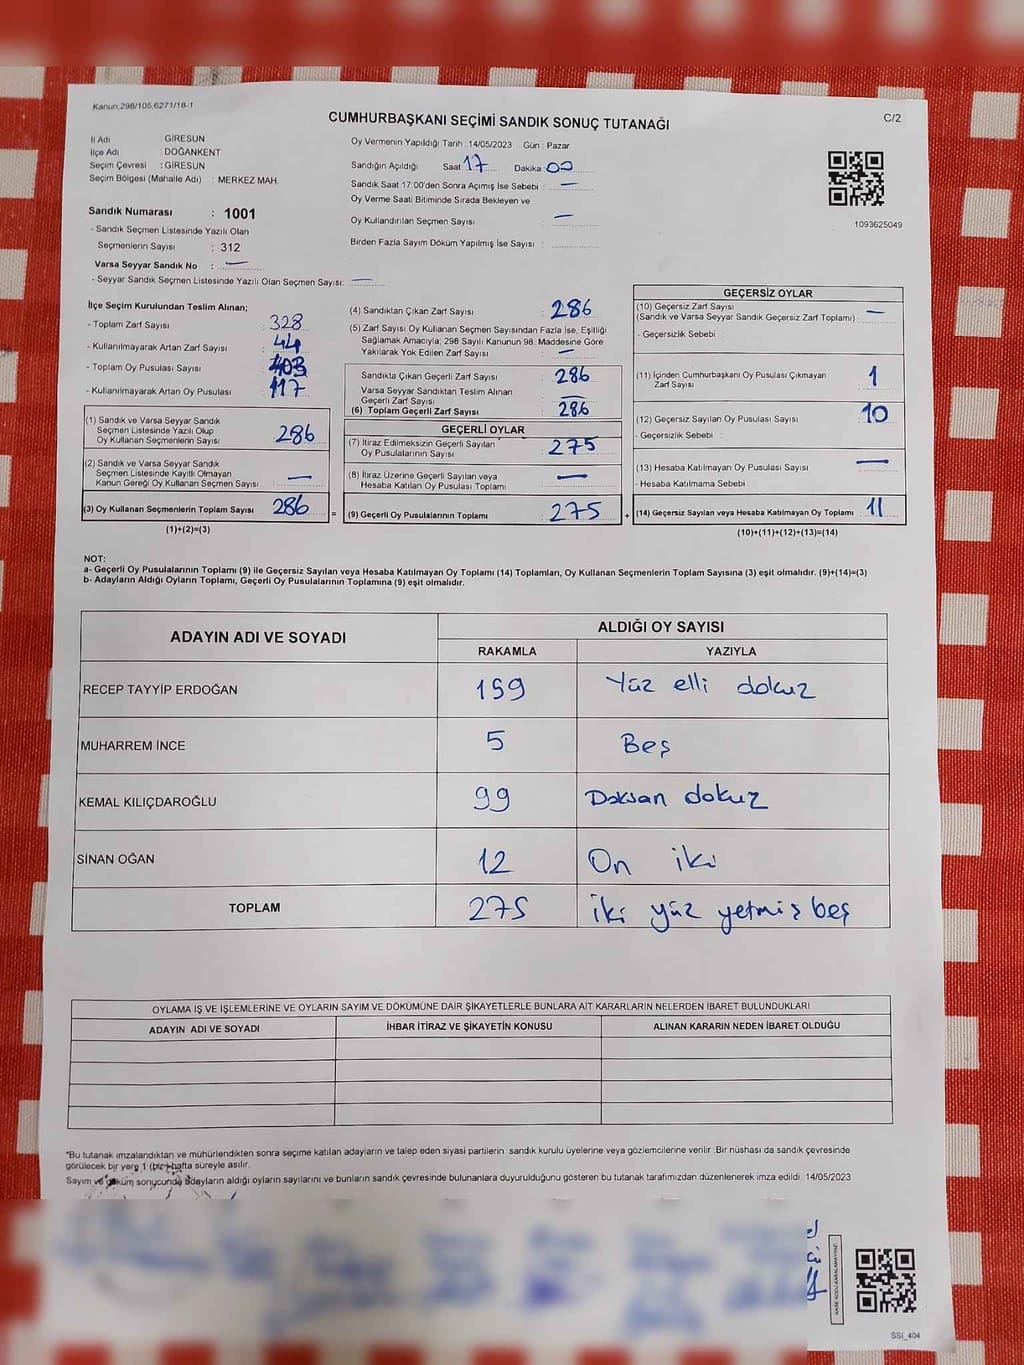 Kanun,298/105,6271/18-1
CUMHURBAŞKANI SEÇİMİ SANDIK SONUÇ TUTANAĞI
C/2
İl Adı : GİRESUN
İlçe Adı : DOĞANKENT
Seçim Çevresi : GİRESUN
Seçim Bölgesi (Mahalle Adı) : MERKEZ MAH.
Oy Vermenin Yapıldığı Tarih : 14/05/2023 Gün : Pazar
Sandığın Açıldığı Saat 17 Dakika 00
Sandık Saat 17:00'den Sonra Açımış İse Sebebi : —
Oy Verme Saati Bitiminde Sırada Bekleyen ve
Oy Kullandırılan Seçmen Sayısı : —
Birden Fazla Sayım Döküm Yapılmış İse Sayısı :
1093625049
Sandık Numarası : 1001
- Sandık Seçmen Listesinde Yazılı Olan
Seçmenlerin Sayısı : 312
Varsa Seyyar Sandık No : —
- Seyyar Sandık Seçmen Listesinde Yazılı Olan Seçmen Sayısı: —
İlçe Seçim Kurulundan Teslim Alınan;
- Toplam Zarf Sayısı : 328
- Kullanılmayarak Artan Zarf Sayısı : 44
- Toplam Oy Pusulası Sayısı : 403
- Kullanılmayarak Artan Oy Pusulası : 117
(1) Sandık ve Varsa Seyyar Sandık
Seçmen Listesinde Yazılı Olup
Oy Kullanan Seçmenlerin Sayısı : 286
(2) Sandık ve Varsa Seyyar Sandık
Seçmen Listesinde Kayıtlı Olmayan
Kanun Gereği Oy Kullanan Seçmen Sayısı : —
(3) Oy Kullanan Seçmenlerin Toplam Sayısı : 286
(1)+(2)=(3)
(4) Sandıktan Çıkan Zarf Sayısı : 286
(5) Zarf Sayısı Oy Kullanan Seçmen Sayısından Fazla İse, Eşitliği
Sağlamak Amacıyla, 298 Sayılı Kanunun 98. Maddesine Göre
Yakılarak Yok Edilen Zarf Sayısı : —
Sandıkta Çıkan Geçerli Zarf Sayısı : 286
Varsa Seyyar Sandıktan Teslim Alınan
Geçerli Zarf Sayısı : —
(6) Toplam Geçerli Zarf Sayısı : 286
GEÇERLİ OYLAR
(7) İtiraz Edilmeksizin Geçerli Sayılan
Oy Pusulalarının Sayısı : 275
(8) İtiraz Üzerine Geçerli Sayılan veya
Hesaba Katılan Oy Pusulası Toplamı : —
= (9) Geçerli Oy Pusulalarının Toplamı : 275 +
GEÇERSİZ OYLAR
(10) Geçersiz Zarf Sayısı
(Sandık ve Varsa Seyyar Sandık Geçersiz Zarf Toplamı) : —
- Geçersizlik Sebebi :
(11) İçinden Cumhurbaşkanı Oy Pusulası Çıkmayan
Zarf Sayısı : 1
(12) Geçersiz Sayılan Oy Pusulası Sayısı : 10
- Geçersizlik Sebebi :
(13) Hesaba Katılmayan Oy Pusulası Sayısı : —
- Hesaba Katılmama Sebebi :
(14) Geçersiz Sayılan veya Hesaba Katılmayan Oy Toplamı : 11
(10)+(11)+(12)+(13)=(14)
NOT:
a- Geçerli Oy Pusulalarının Toplamı (9) ile Geçersiz Sayılan veya Hesaba Katılmayan Oy Toplamı (14) Toplamları, Oy Kullanan Seçmenlerin Toplam Sayısına (3) eşit olmalıdır. (9)+(14)=(3)
b- Adayların Aldığı Oyların Toplamı, Geçerli Oy Pusulalarının Toplamına (9) eşit olmalıdır.
ADAYIN ADI VE SOYADI ALDIĞI OY SAYISI
RAKAMLA YAZIYLA
RECEP TAYYİP ERDOĞAN 159 Yüz elli dokuz
MUHARREM İNCE 5 Beş
KEMAL KILIÇDAROĞLU 99 Doksan dokuz
SİNAN OĞAN 12 On iki
TOPLAM 275 iki yüz yetmiş beş
OYLAMA İŞ VE İŞLEMLERİNE VE OYLARIN SAYIM VE DÖKÜMÜNE DAİR ŞİKAYETLERLE BUNLARA AİT KARARLARIN NELERDEN İBARET BULUNDUKLARI
ADAYIN ADI VE SOYADI İHBAR İTİRAZ VE ŞİKAYETİN KONUSU ALINAN KARARIN NEDEN İBARET OLDUĞU
*Bu tutanak imzalandıktan ve mühürlendikten sonra seçime katılan adayların ve talep eden siyasi partilerin sandık kurulu üyelerine veya gözlemcilerine verilir .Bir nüshası da sandık çevresinde
görülecek bir yere 1 (bir) hafta süreyle asılır.
Sayım ve döküm sonucunda adayların aldığı oyların sayılarını ve bunların sandık çevresinde bulunanlara duyurulduğunu gösteren bu tutanak tarafımızdan düzenlenerek imza edildi. 14/05/2023
KARE KODU KARALAMAYINIZ!
SSI_404